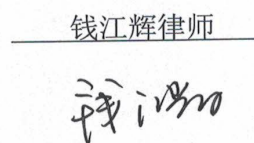 钱江辉律师
钱江辉